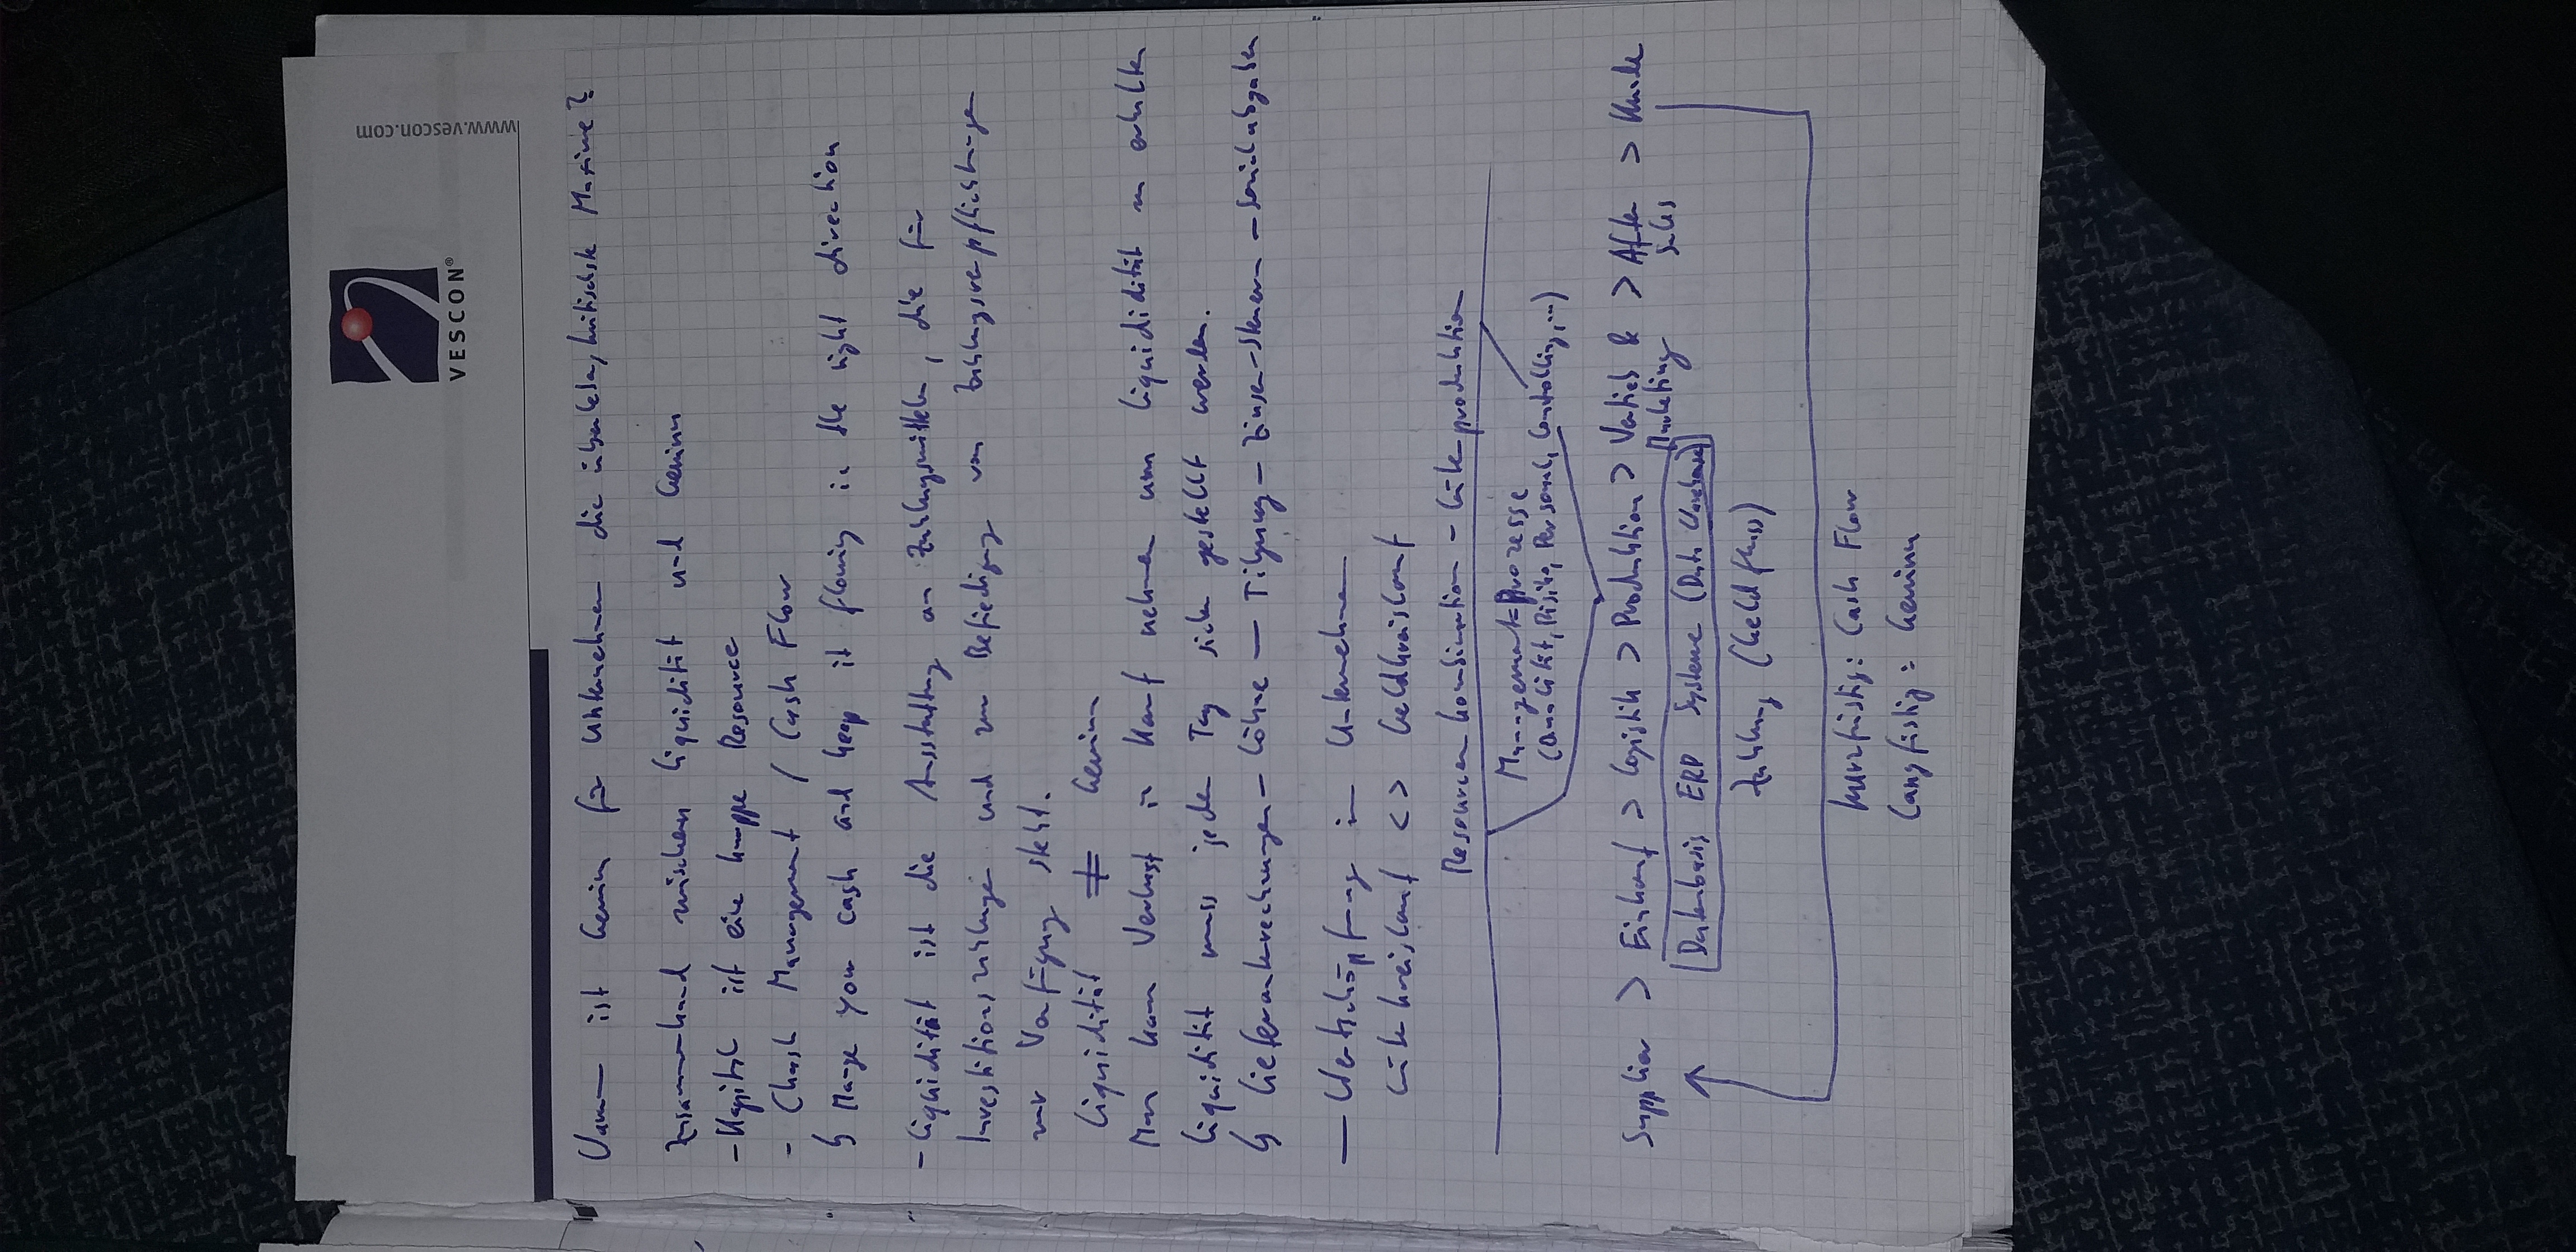 VESCON®
www.vescon.com
Warum ist Gewinn für Unternehmen die überlebenskritischste Maxime?
Zusammenhand zwischen Liquidität und Gewinn
- Kapital ist eine knappe Resource
- Chash Management / Cash Flow
↳ Mange your cash and keep it flowing in the right direction
- Liquidität ist die Ausstattung an Zahlungsmitteln, die für
Investitionszahlungen und zur Befiedigung von Zahlungsverpflichtungen
zur Verfügung steht.
Liquidität ≠ Gewinn
Man kann Verlust in Kauf nehmen um Liquididität zu erhalten
Liquidität muss jeden Tag sicher gestellt werden.
↳ Lieferantenrechnungen - Löhne - Tilgung - Zinsen - Steuern - Sozialabgaben
- Wertschöpfung im Unternehmen
Güterkreislauf <> Geldkreislauf
Resourcenkombination - Güterproduktion
Management-Prozesse
(Qualität, Risiko, Personal, Controlling, ...)
Supplier > Einkauf > Logistik > Produktion > Vertieb & > After > Kunde
Marketing Sales
Datenbasis ERP Systeme (Data Warehouse)
Zahlung (Geldfluss)
kurzfristig: Cash Flow
Langfistig: Gewinn